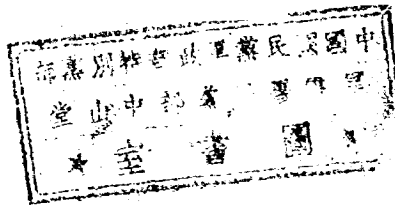 中國國民黨軍政特別黨部
部中山堂
圖書室